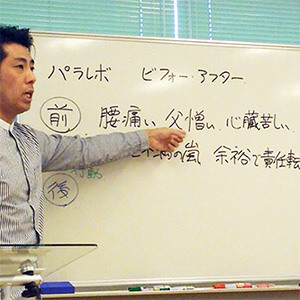 パラレボ ビフォー・アフター
前 腰痛い 父憎い 心臓苦しい
の嵐 余裕で責任転
後